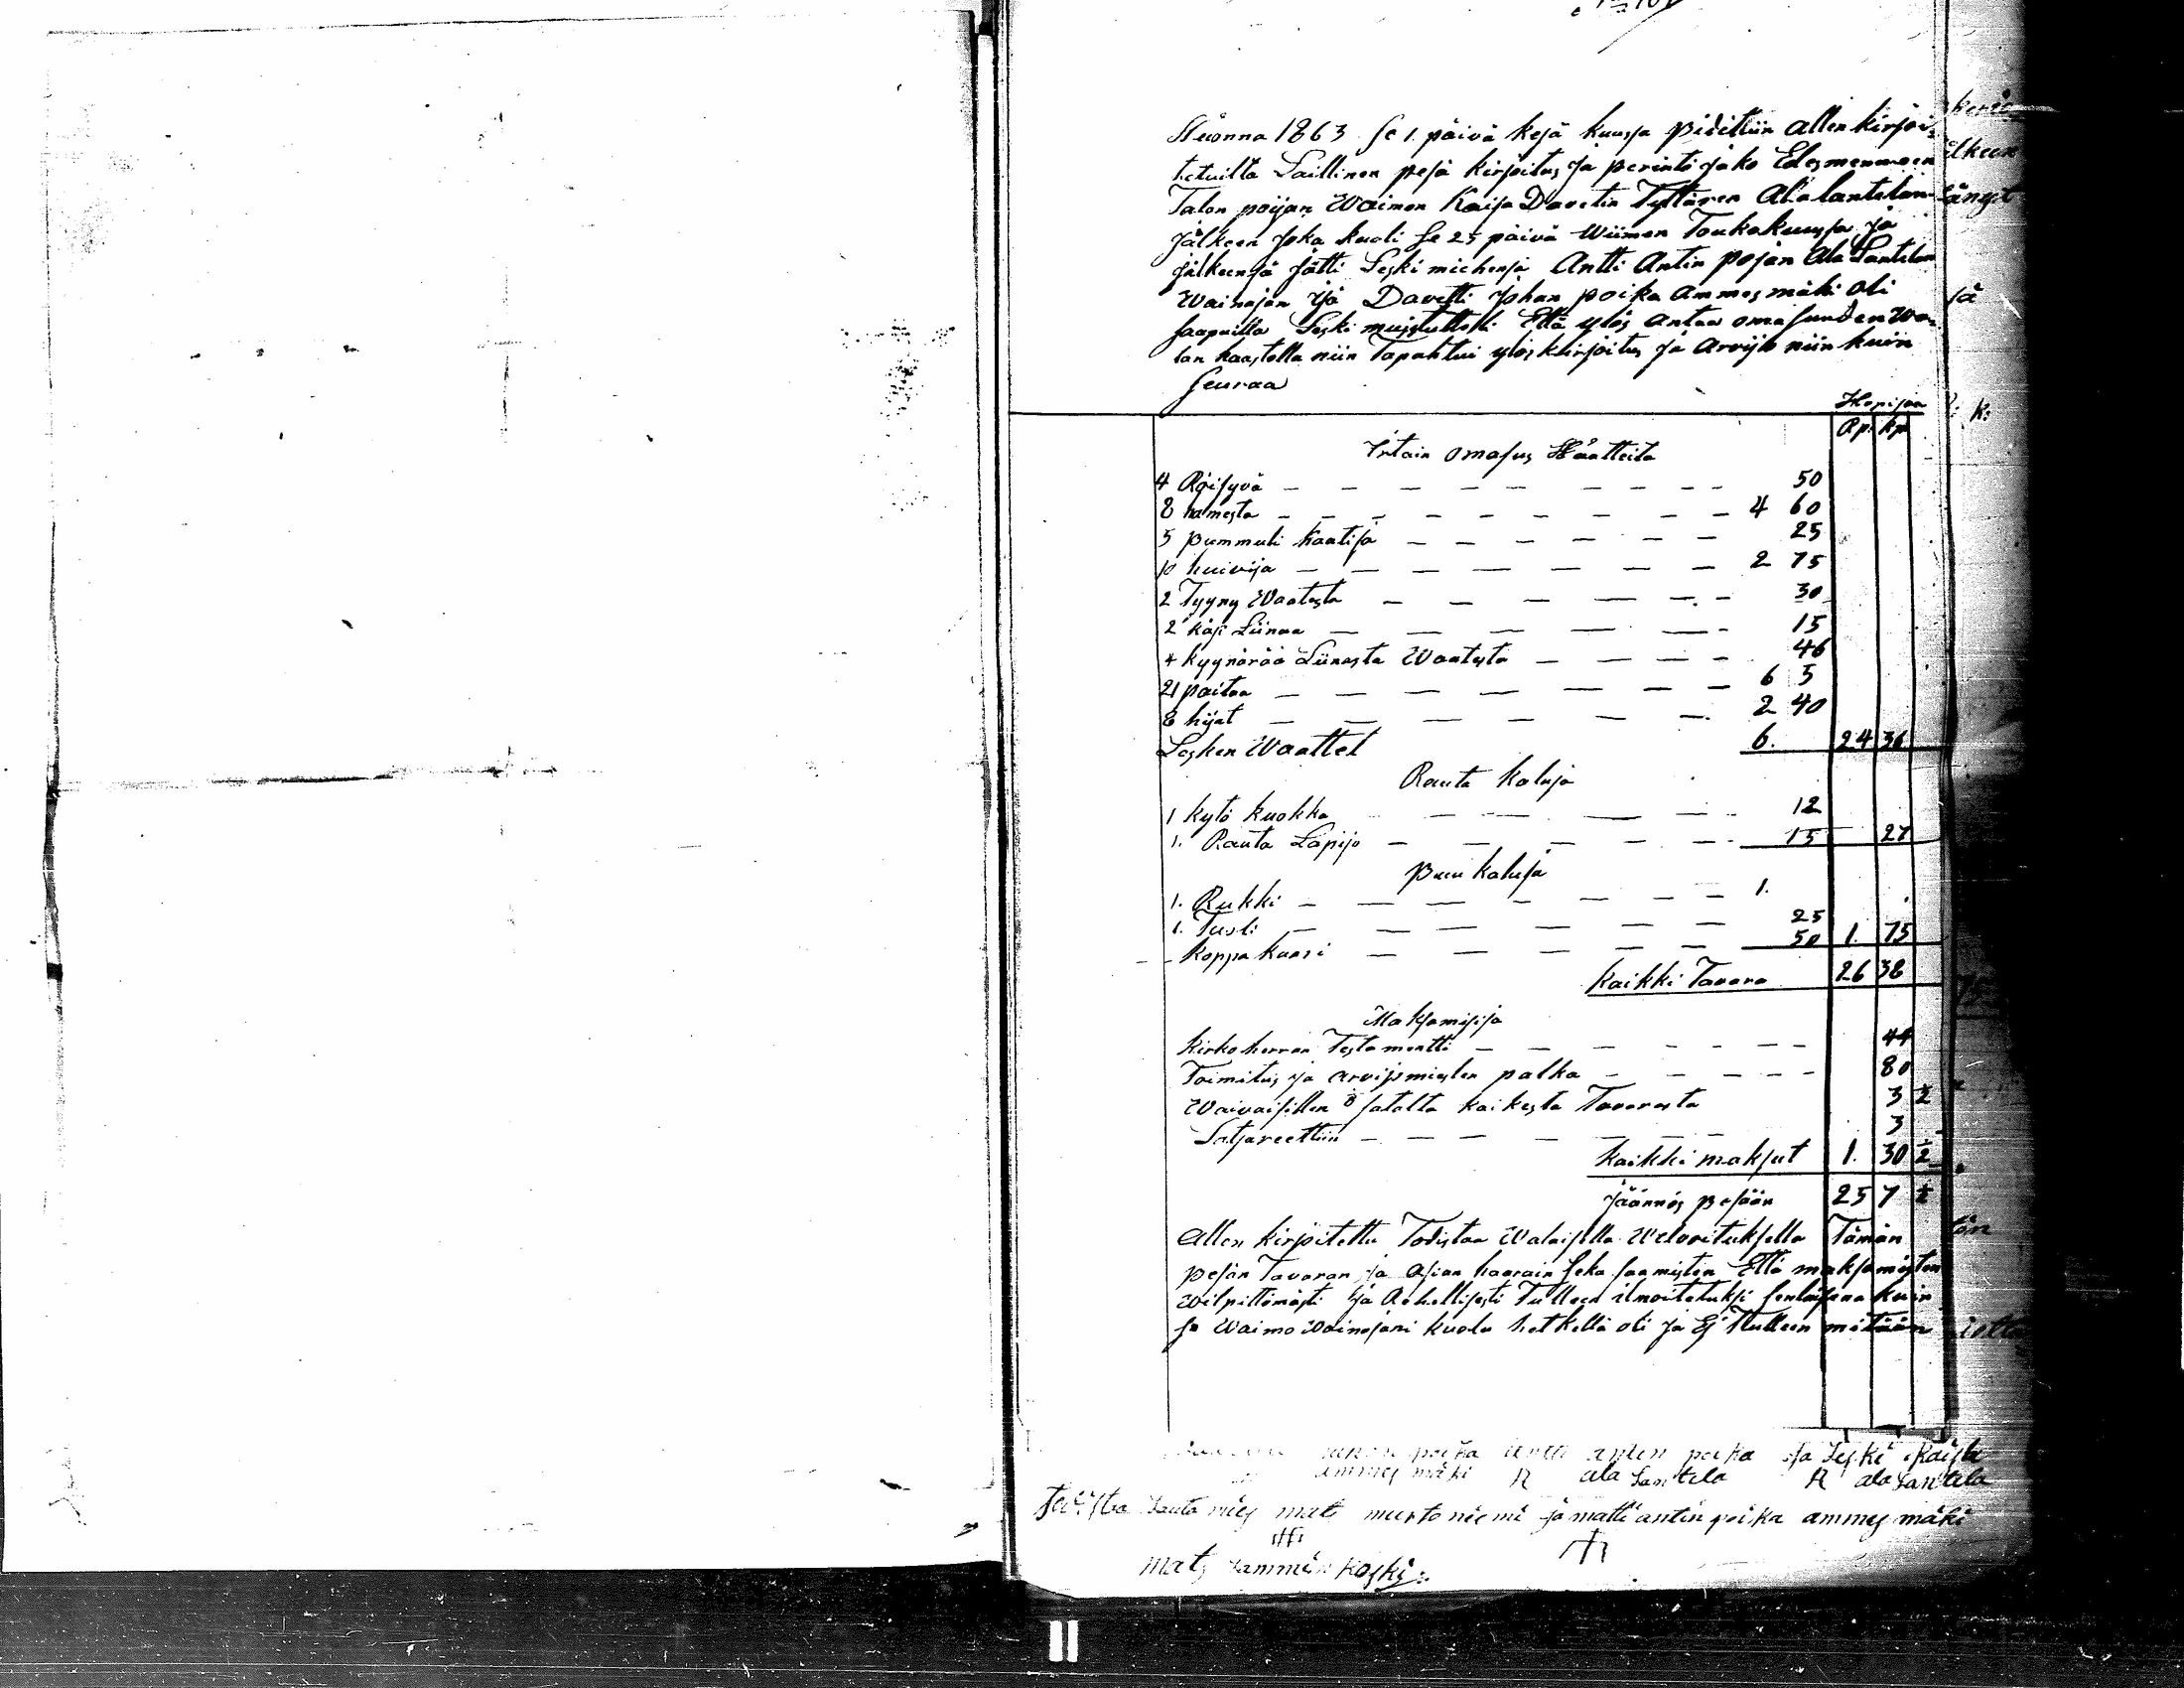 Wuonna 1863 se 1. päivä kesä kuussa pidettiin allen kirjoi-
tetuilta Laillinen pesä kirjoitus ja perintö jako Edesmenneen
Talon poijan Waimon Kaisa Davetin Tyttären Ala lantelan
jälkeen joka kuoli se 25 päivä Wiimen Toukokuussa ja
jälkeensä jätti Leski miehensä Antti Antin pojan Ala Lantelan
Wainajan isä Davetti Johan poika Ammesmäki oli
saapuilla Leski muistutettiin Että ylös antaa omasuuden Wa-
lan haastolla niin Tapahtui ylös kirjoitus ja Arvijo niin kuin
seuraa
Hopijaa
Rp. kp
Irtain omasus Waatteita
4 Röijyvä — 50
8 hamesta — 4 60
5 pummuli kaatija — 25
10 huivija — 2 75
2 Tyyny Waatesta — 30
2 käsi Liinaa — 15
4 kyynärää Liinasta Waatesta — 46
21 paitaa — 6 5
8 hijat — 2 40
Lesken Waattet 6. 24 36
Rauta kaluja
1 kytö kuokka — 12
1. Rauta Lapijo — 15 27
puu kaluja
1. Rukki — 1.
1. Tuoli — 25
koppa kaari — 50 1. 75
kaikki Tavara 26 38
Maksamisija
kirko herran Testamentti — 44
Toimitus ja arvijomiesten palka — 80
Waivaisillen 8 satalta kaikesta Tavarasta 3 ½
Latsareettiin — 3
kaikki maksut 1. 30 ½
jäännös pesään 25 7 ½
Allen kirjoitettu Todistaa Walaisella Welvoituksella Tämän
pesän Tavaran ja Asian haarain seka saamisten Että maksamisten
wilpittömästi ja Rehellisesti Tulleen ilmoitetuksi senlaisena kuin
se Waimo Wainajani kuolu hetkellä oli ja Ej Tulleen mitään
poika antti antin poika ja Leski kaisle
ammes mäki A ala Lantela A ala Lantela
Todistaa Lauta mies mats murto niemi ja matti antin poika ammes mäki
mats Lammin koski